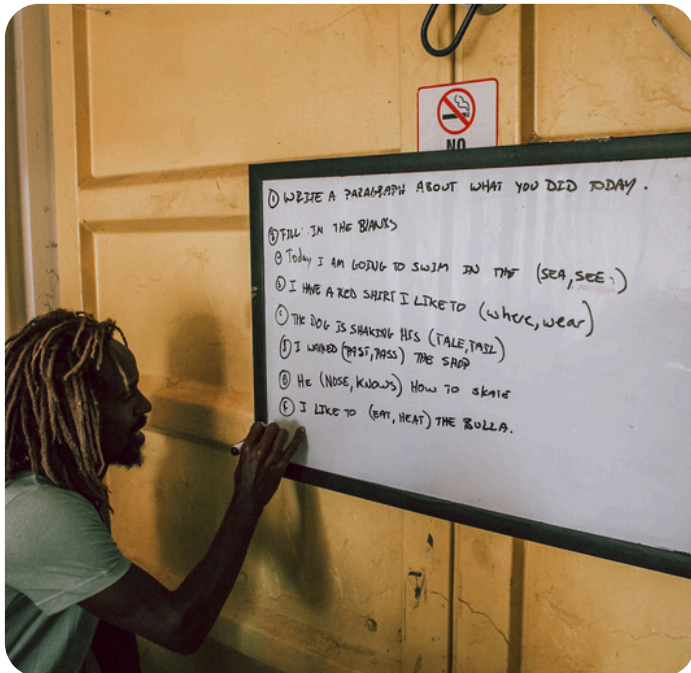 NO
① WRITE A PARAGRAPH ABOUT WHAT YOU DID TODAY.
② FILL IN THE BLANKS
Ⓐ Today I AM GOING TO SWIM IN THE (SEA, SEE,)
Ⓑ I HAVE A RED SHIRT I LIKE TO (where, wear)
Ⓒ THE DOG IS SHAKING HIS (TALE, TAIL)
Ⓓ I WALKED (PAST, PASS) THE SHOP
Ⓔ HE (NOSE, KNOWS) HOW TO SKATE
Ⓕ I LIKE TO (EAT, HEAT) THE BULLA.